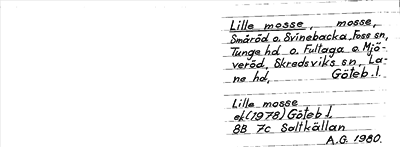 Lille mosse, mosse,
Småröd o. Svinebacka, Foss sn,
Tunge hd o. Fultaga o. Mjö-
veröd, Skredsviks sn, La-
ne hd, Göteb. l.
Lille mosse
ek (1978) Göteb. l.
8B 7c Saltkällan
A.G. 1980.